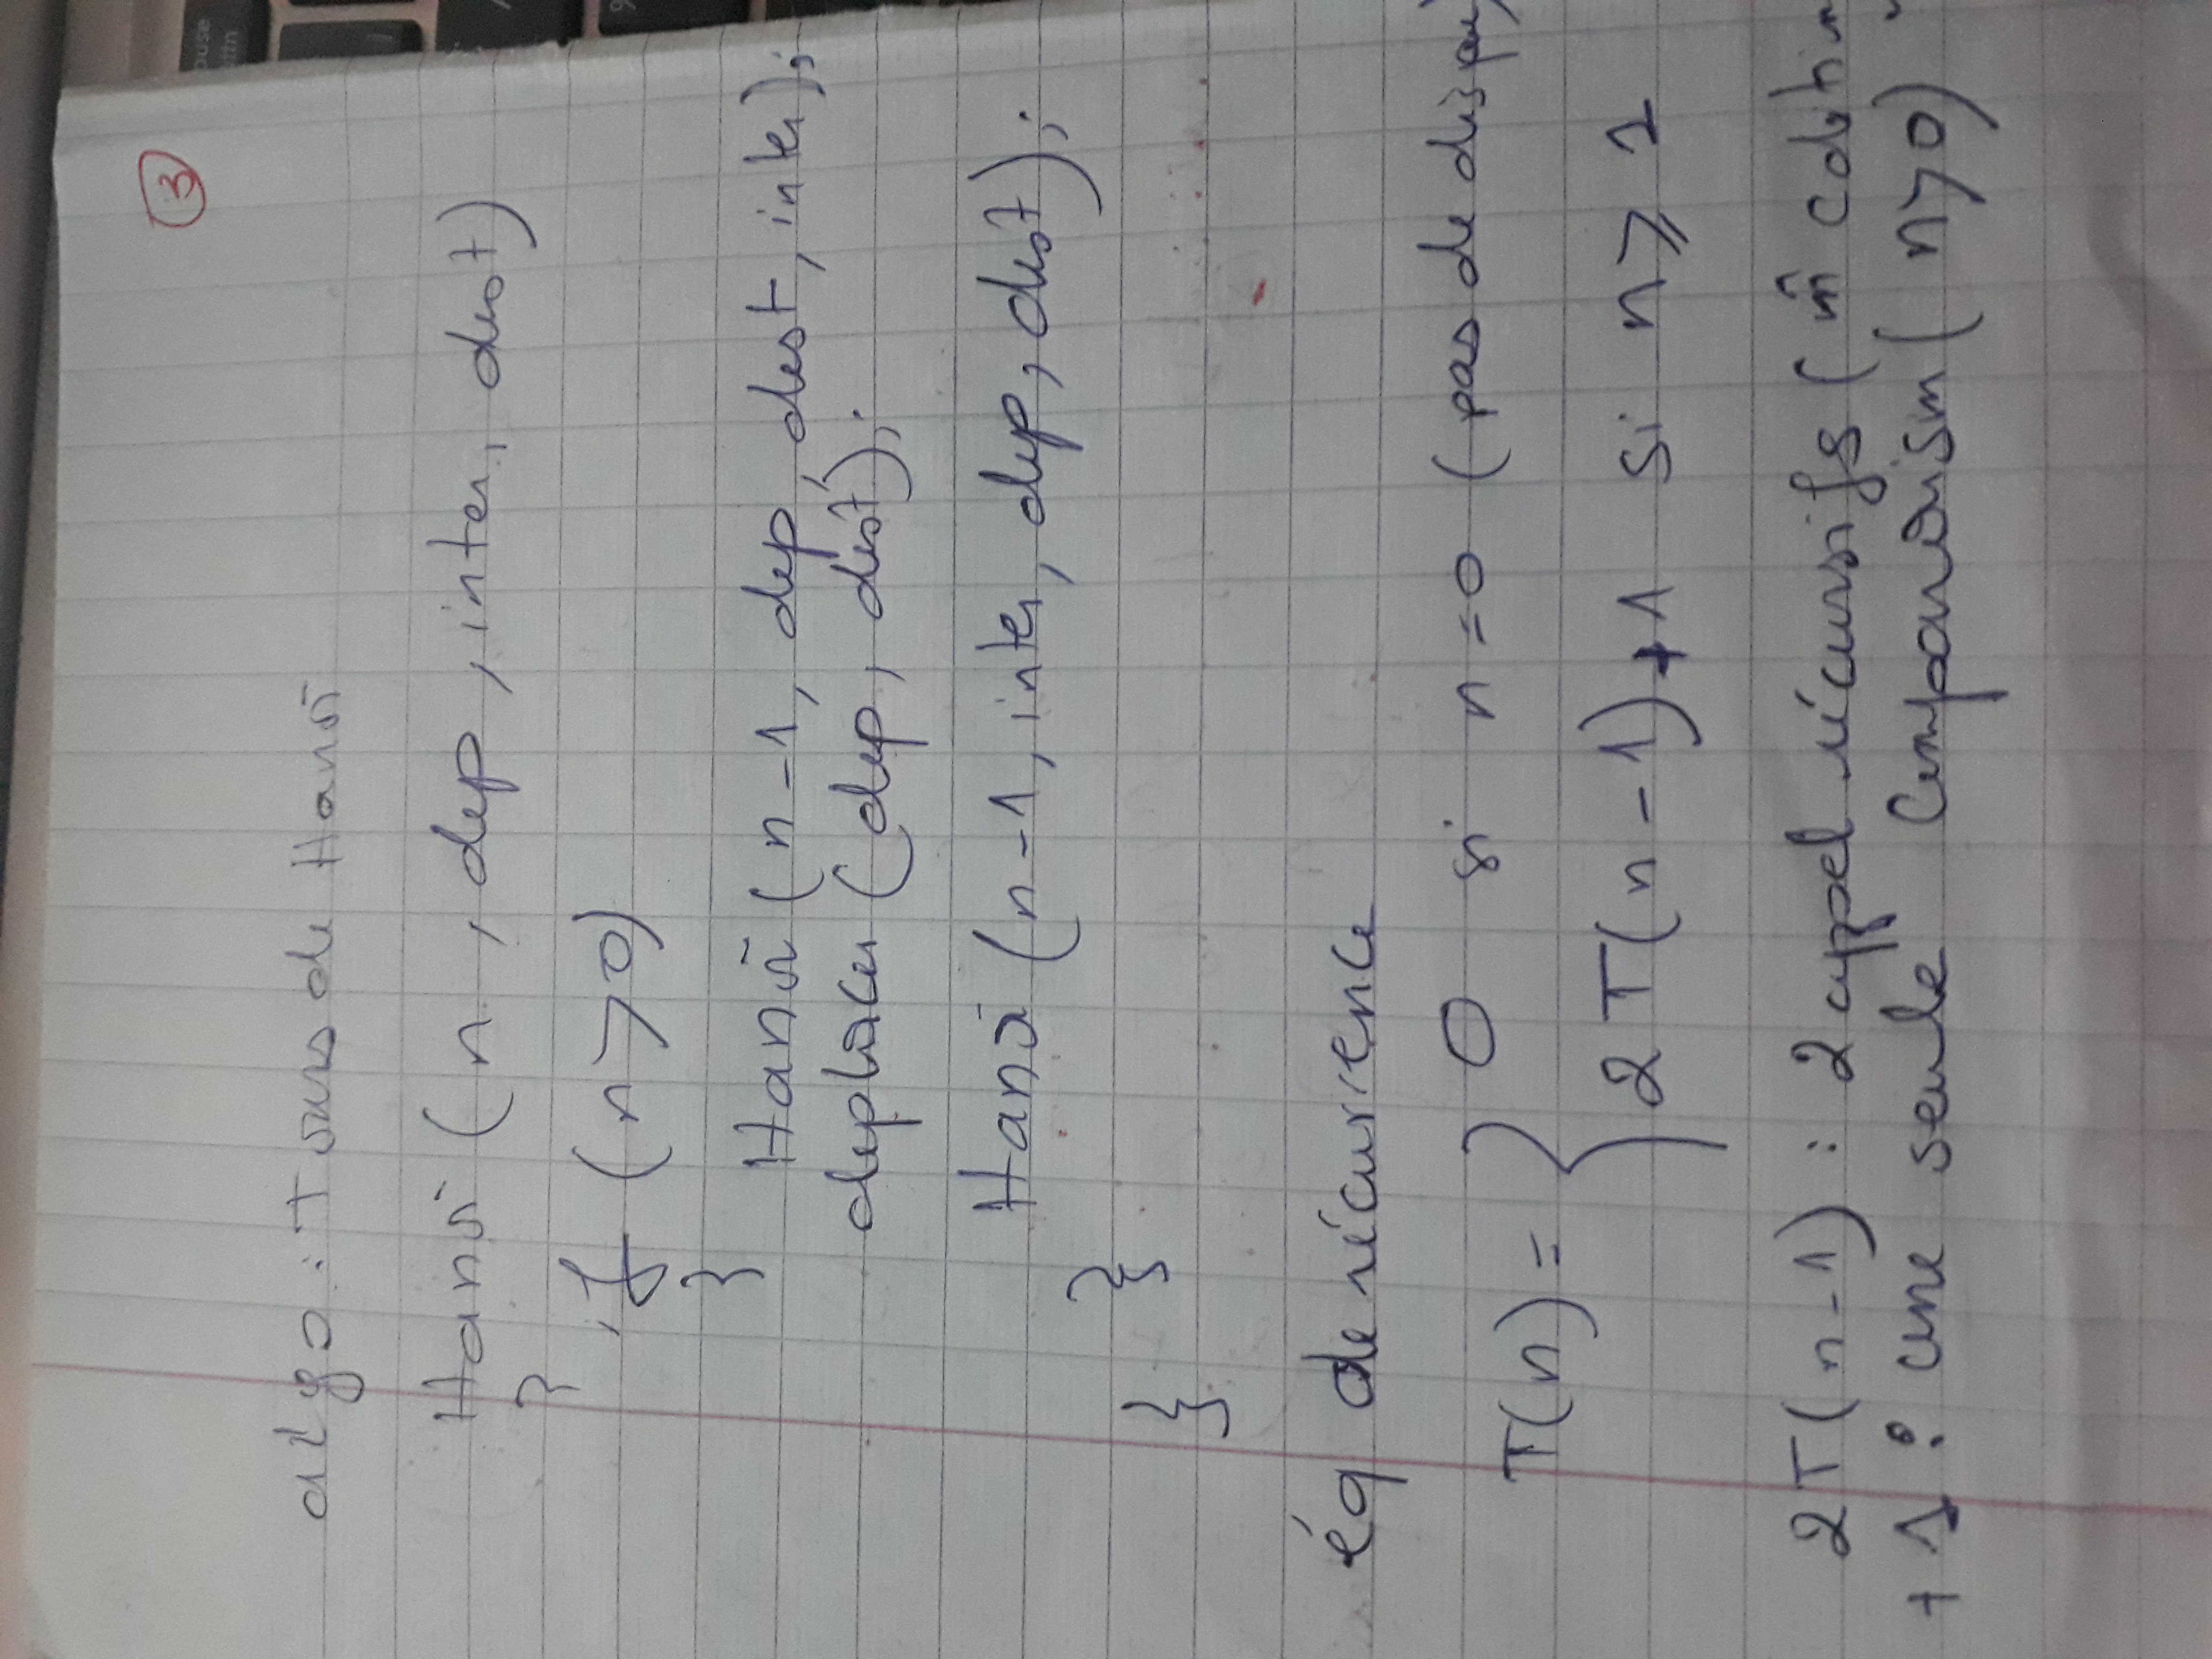 3
algo : Tours de Hanoï
Hanoï ( n , dep , inter, dest)
{
if (n>0)
}
Hanoï ( n-1, dep, dest, inter);
deplacer (dep, dest);
Hanoï (n-1, inter, dep, dest);
}
}
éq de récurrence
T(n) = { 0 si n=0 (pas de disque)
2T(n-1)+1 si n ⩾ 1
2T(n-1) : 2 appel récursifs ( m̂
+ 1 : une seule Comparaison ( n>0)